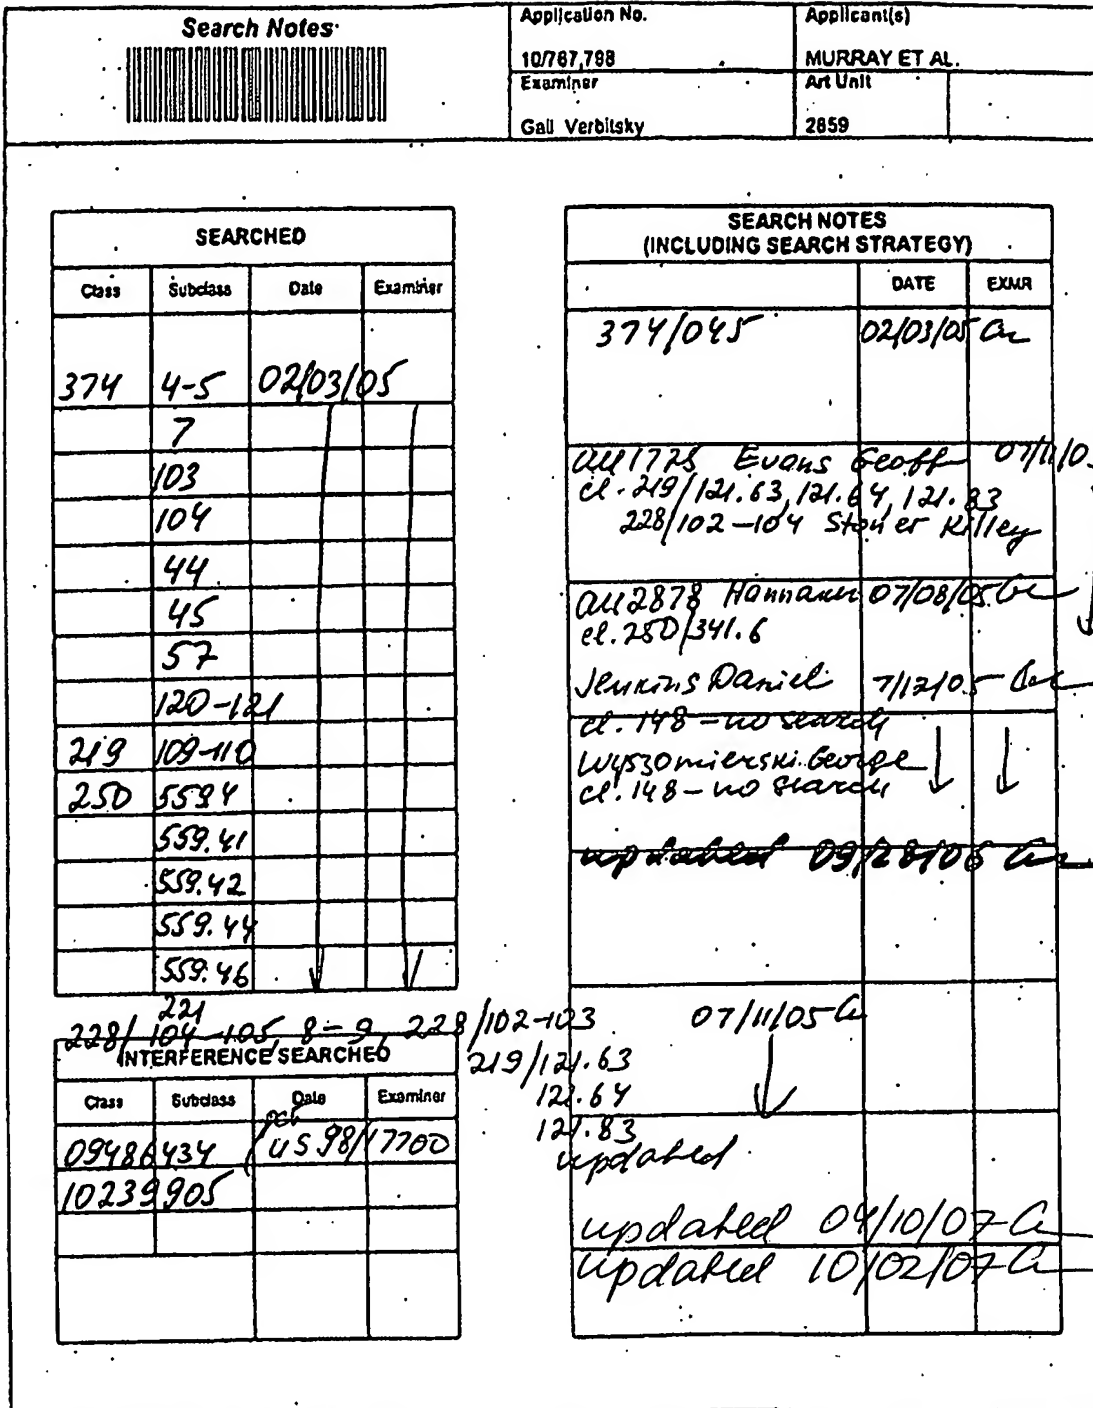 Search Notes
Application No.
10/787,798
Applicant(s)
MURRAY ET AL.
Examiner
Gail Verbitsky
Art Unit
2859
SEARCHED
Class Subclass Date Examiner
374 4-5 02/03/05
7
103
104
44
45
57
120-121
219 109-110
250 559.4
559.41
559.42
559.44
559.46
221
228/104-105, 8-9, 228/102-103
219/121.63
121.64
121.83
updated
07/11/05
INTERFERENCE SEARCHED
Class Subclass Date Examiner
09486434 pct/US98/17700
10239905
SEARCH NOTES
(INCLUDING SEARCH STRATEGY)
DATE EXMR
374/045 02/03/05
AU1725 Evans Geoff 07/11/05
cl. 219/121.63, 121.64, 121.83
228/102-104 Stoner Killey
AU2878 Hannaher 07/08/05
cl. 250/341.6
Jenkins Daniel 7/12/05
cl. 148 - no search
Wyszomierski George
cl. 148 - no search
updated 09/28/06
updated 04/10/07
updated 10/02/07